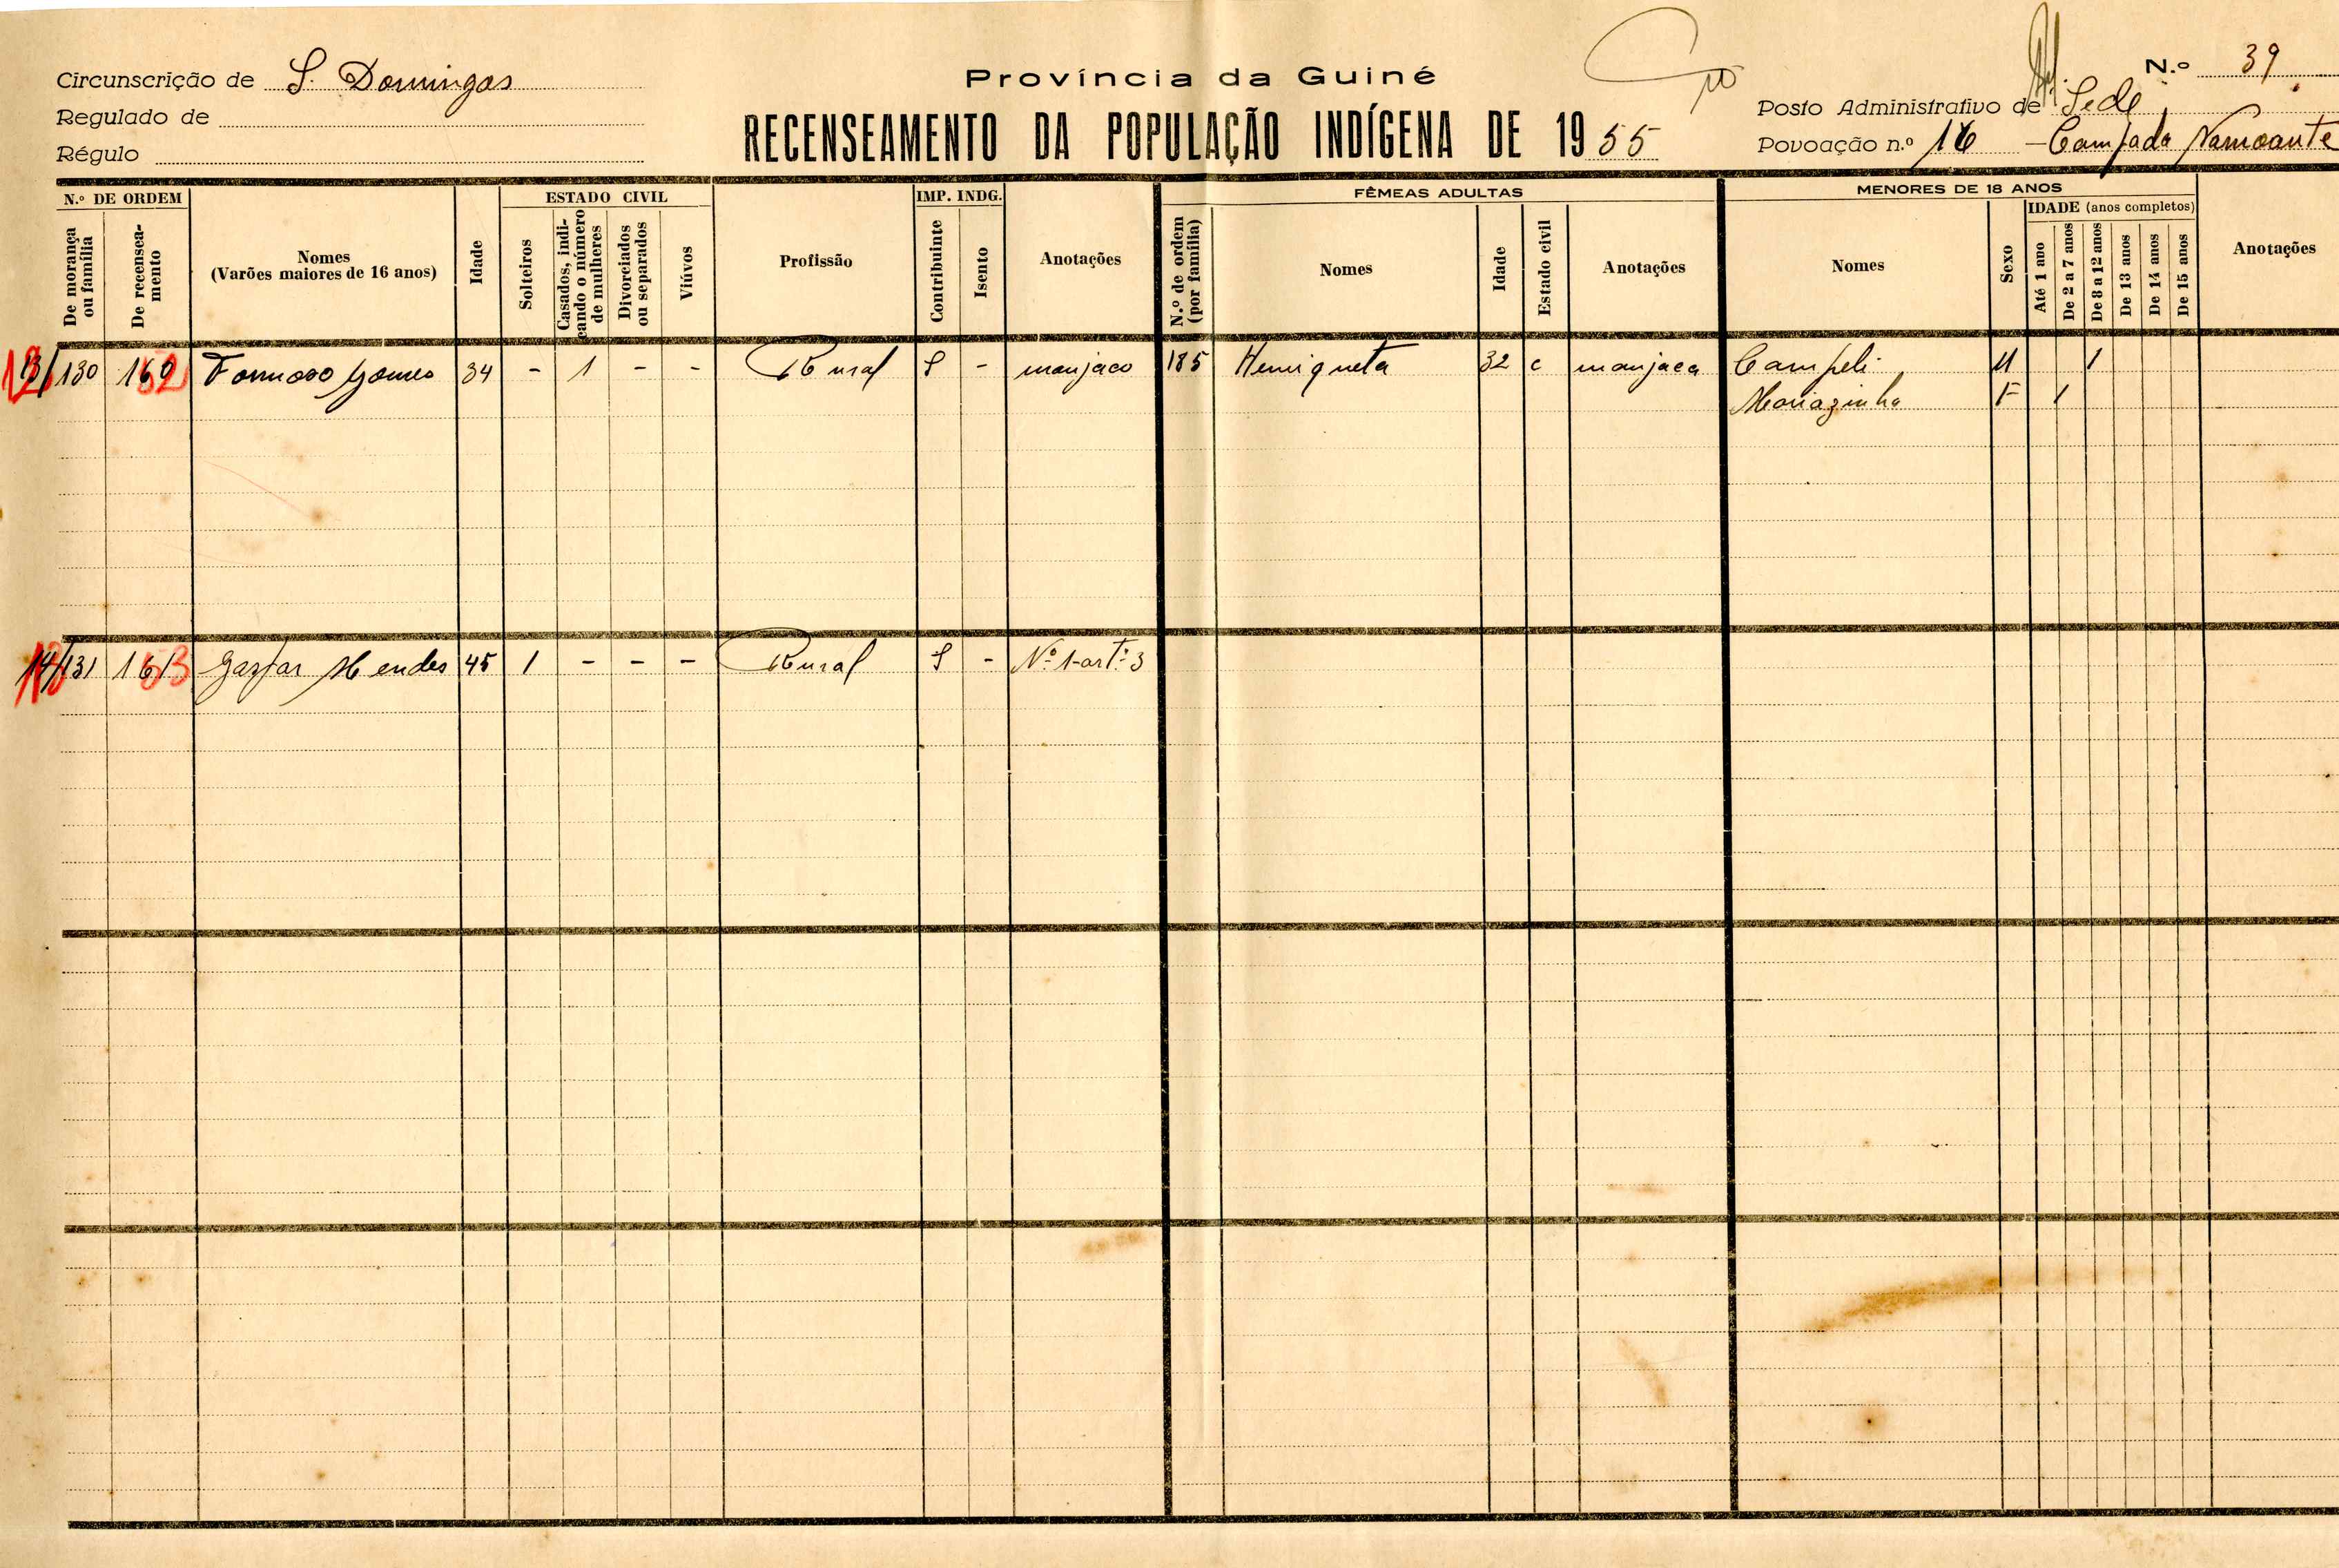 Circunscrição de S. Domingos
Regulado de
Régulo
Província da Guiné
RECENSEAMENTO DA POPULAÇÃO INDÍGENA DE 1955
N.º 39
Posto Administrativo de Sede
Povoação n.º 16 - Campada Namoante
N.º DE ORDEM
De morança ou família
De recenseamento
Nomes
(Varões maiores de 16 anos)
Idade
ESTADO CIVIL
Solteiros
Casados, indicando o número de mulheres
Divorciados ou separados
Viúvos
Profissão
IMP. INDG.
Contribuinte
Isento
Anotações
FÊMEAS ADULTAS
N.º de ordem (por família)
Nomes
Idade
Estado civil
Anotações
MENORES DE 18 ANOS
Nomes
Sexo
IDADE (anos completos)
Até 1 ano
De 2 a 7 anos
De 8 a 12 anos
De 13 anos
De 14 anos
De 15 anos
Anotações
13/130 160 Formoso Gomes 34 - 1 - - Rural S - manjaco 185 Henriqueta 32 c manjaca Campeli M 1
Mariazinha F 1
14/131 161 Gaspar Mendes 45 1 - - - Rural S - Nº 1-artº 3